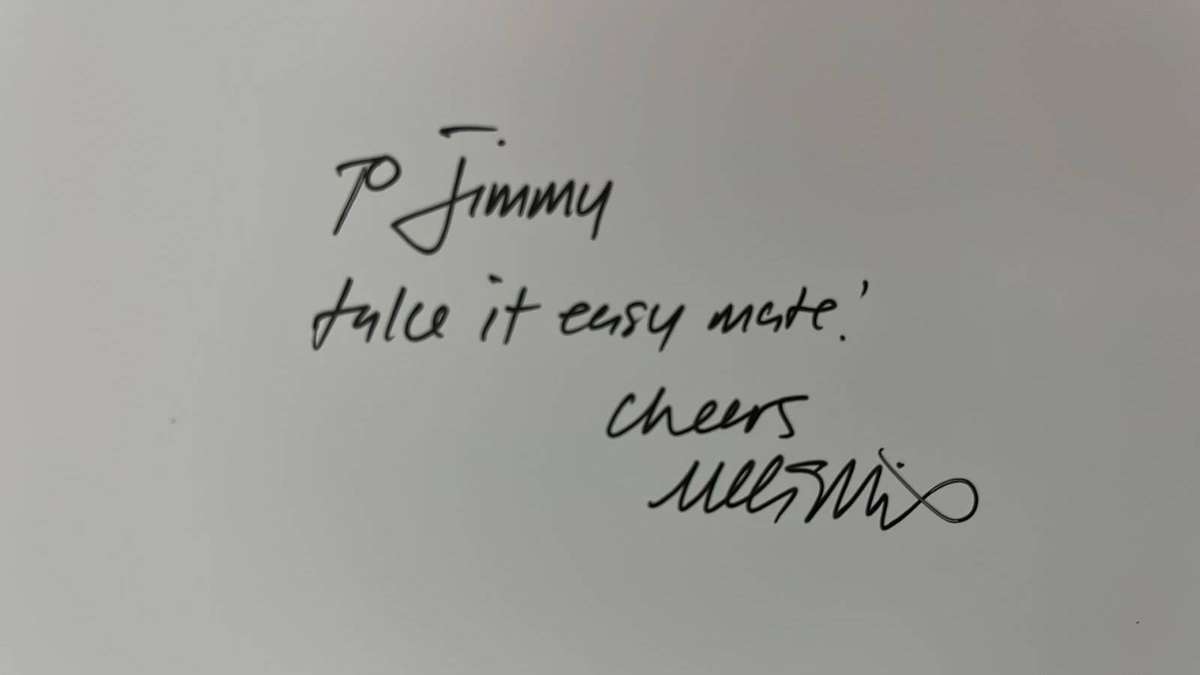 To Jimmy
take it easy mate!
cheers